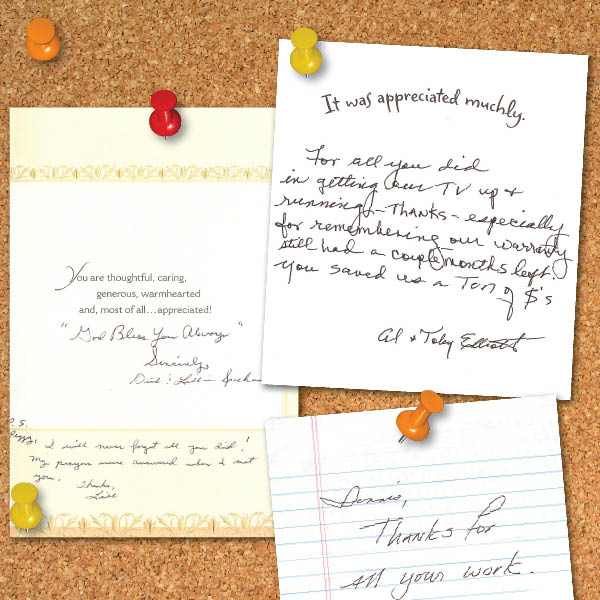 It was appreciated muchly.
For all you did
in getting our TV up &
running - THANKS - especially
for remembering our warranty
still had a couple months left.
You saved us a Ton of $'s
Al & Toby Elliott
You are thoughtful, caring,
generous, warmhearted
and, most of all...appreciated!
"God Bless You Always"
Sincerely,
P.S.
Peggy, I will never forget all you did!
My prayers were answered when I met
you,
Thanks,
Lill
Dennis,
Thanks for
all your work.